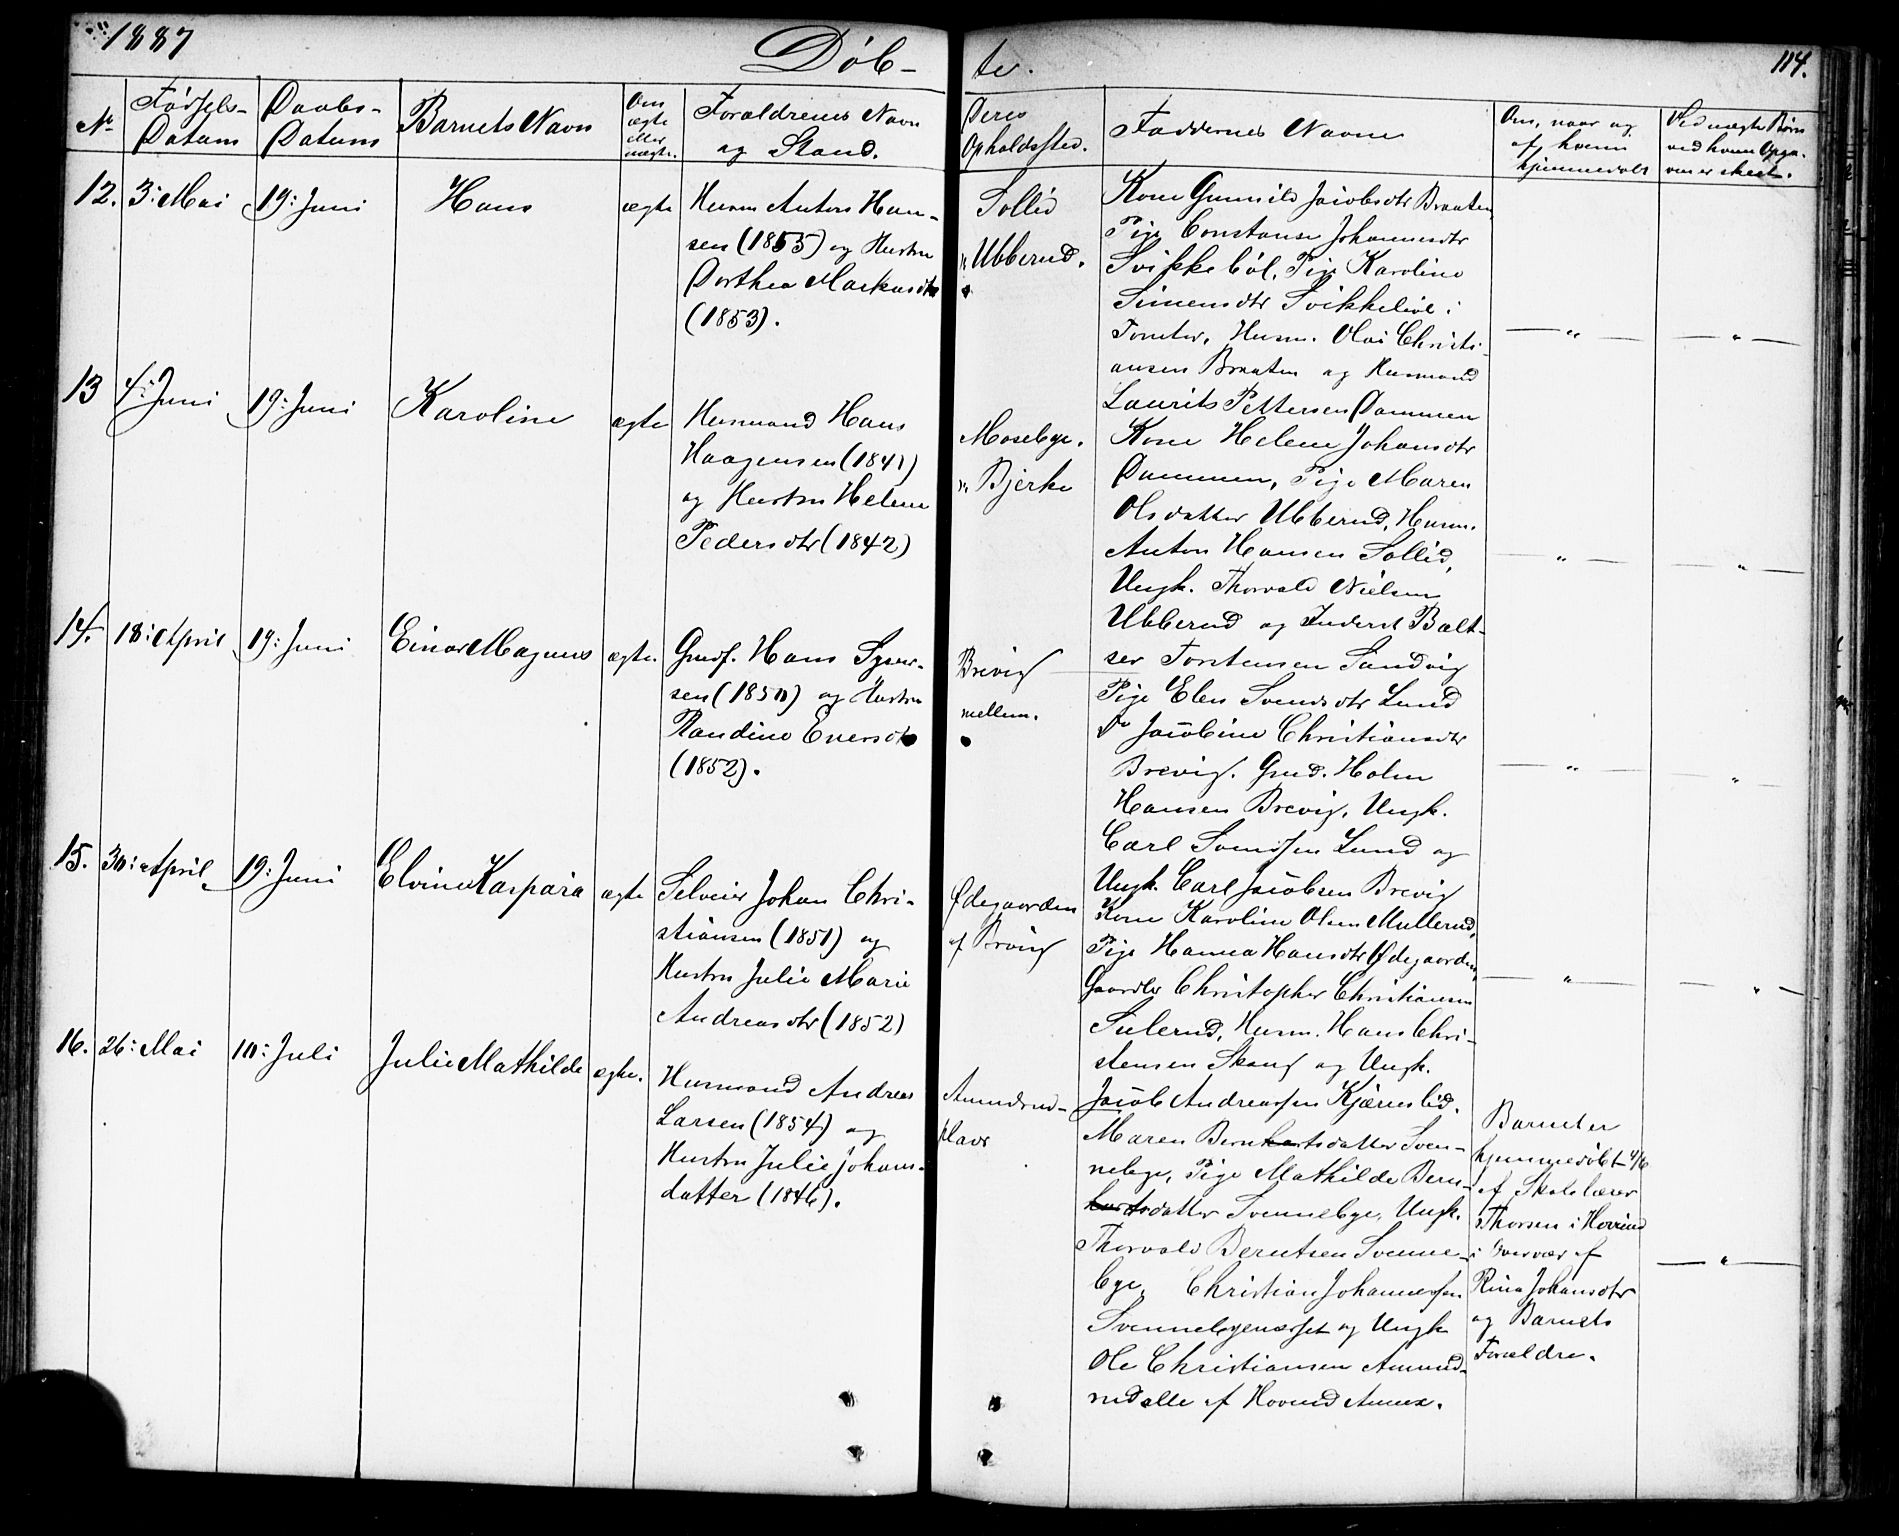 1887 Døb- te. 114.
No
Fødsels-
Datum
Daabs-
Datum
Barnets Navn
Om
ægte
eller
uægte.
Forældrenes Navn
og Stand.
Deres
Opholdssted.
Faddernes Navne
Om, naar og
af hvem
hjemmedøbt
Ved uægte Børn
ved hvem Opga-
ven er skeet.
12. 3: Mai 19: Juni Hans ægte
Husm Anton Han-
sen (1855) og Hustru
Dorthea Markusdtr
(1853).
Sollid
u. Ubberud.
Kone Gunnild Jacobsdtr Braaten
Pige Constanse Johannesdtr
Svikkebøl, Pige Karoline
Simensdtr Svikkebøl i
Husm. Olai Christi-
ansen Braaten og Husmand
Laurits Pettersen Dammen
— " — — " —
13 4: Juni 19: Juni Karoline ægte
Husmand Hans
Haagensen (1841)
og Hustru Helene
Pedersdtr (1842)
Mosebye.
u. Bjerke
Kone Helene Johansdtr
Dammen, Pige Maren
Olsdatter Ubberud, Husm.
Anton Hansen Sollid,
Ungk. Thorvald Nielsen
Ubberud og Inderst Balt-
ser Torstensen Sandvig
— " — — " —
14. 18: April 19: Juni Einar Magnus ægte.
Grdf. Hans Syver-
sen (1850) og Hustru
Randine Eversdtr
(1852).
Brevig
mellem.
Pige Elen Svendsdtr Lund
Do Jacobine Christiansdtr
Brevig. Grmd. Holm
Hansen Brevig, Ungk.
Carl Svendsen Lund og
Ungk. Carl Jacobsen Brevig
— " — — " —
15. 30: April 19: Juni Elvine Kaspara ægte
Selveier Johan Chri-
stiansen (1851) og
Hustru Julie Marie
Andreasdtr (1852)
Ødegaarden
af Brevig
Kone Karoline Olsen Mullerud,
Pige Hanna Hansdtr Ødegaarden,
Gaardbr Christopher Christiansen
Sulerud, Husm. Hans Chri-
stensen Skaug og Ungk.
Jacob Andreassen Kjærnslid.
— " — — " —
16. 26: Mai 10: Juli Julie Mathilde ægte.
Husmand Andreas
Larsen (1854) og
Hustru Julie Johans-
datter (1846).
Amundrud-
Maren Bernhartsdatter Sven-
nebye, Pige Mathilde Bern-
hartsdatter Svennebye, Ungk.
Thorvald Berntsen Svenne-
bye, Christian Johannessen
og Ungk
Ole Christiansen Amund-
rud alle af Hovind Annex.
Barnet er
hjemmedøbt 4/6
af Skolelærer
Thorsen i Hovind
i Overvær af
Rina Johansdtr
og Barnets
Forældre.
— " —